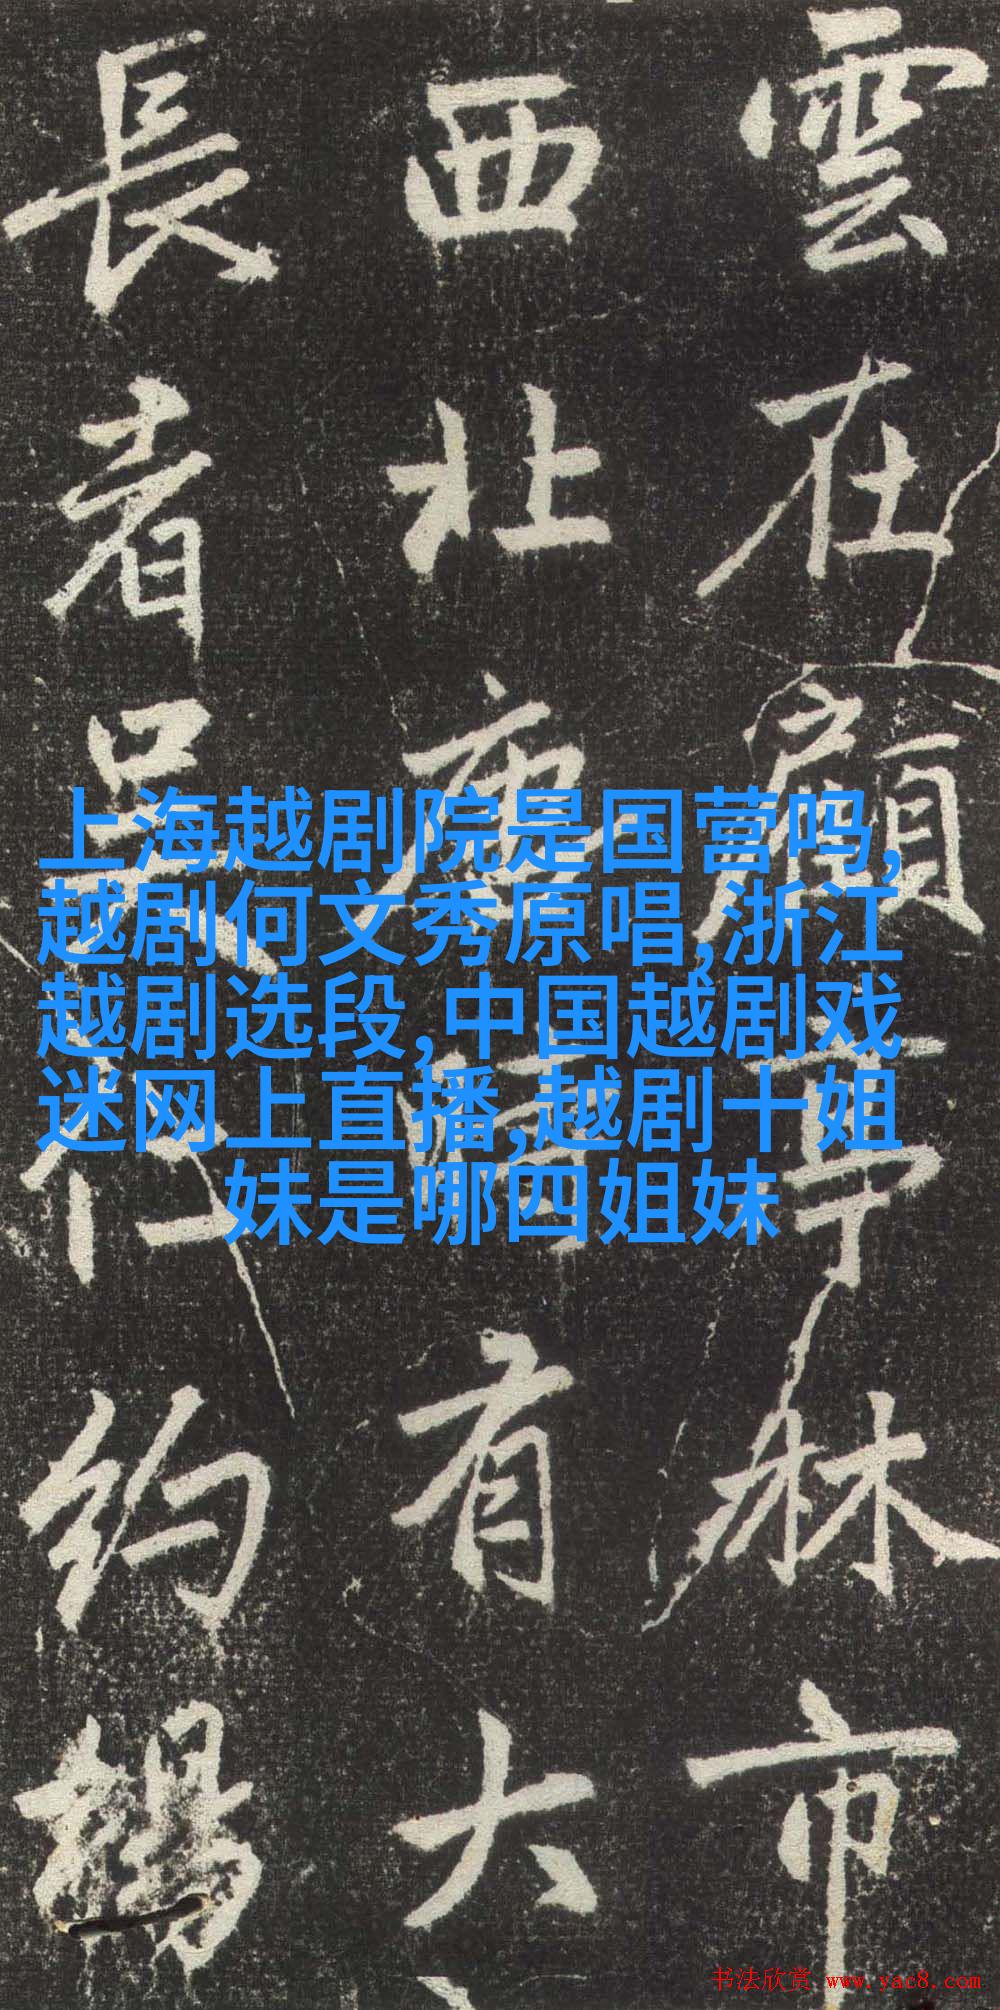 雲在顧亭林市
西北有大
長者吳約
上海越剧院是国营吗,
越剧何文秀原唱,浙江
越剧选段,中国越剧戏
迷网上直播,越剧十姐
妹是哪四姐妹
书法欣赏 www.yac8.com